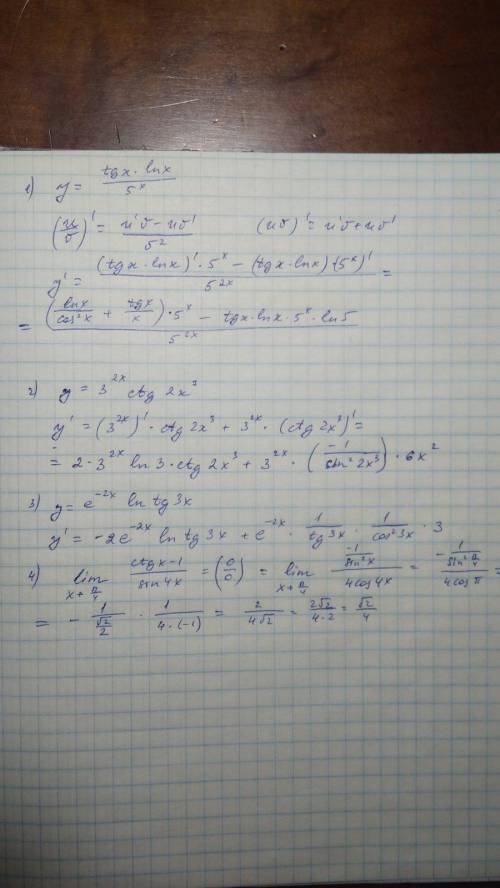 1) y = (tgx · lnx)/5^x
(u/v)' = (u'v - uv')/v^2 (uv)' = u'v + uv'
y' = ((tgx · lnx)' · 5^x - (tgx · lnx) · (5^x)')/5^{2x} =
= ((lnx/cos^2x + tgx/x) · 5^x - tgx · lnx · 5^x · ln5)/5^{2x}
2) y = 3^{2x} ctg 2x^3
y' = (3^{2x})' · ctg 2x^3 + 3^{2x} · (ctg 2x^3)' =
= 2 · 3^{2x} ln 3 · ctg 2x^3 + 3^{2x} · (-1/sin^2 2x^3) · 6x^2
3) y = e^{-2x} ln tg 3x
y' = -2e^{-2x} ln tg 3x + e^{-2x} · 1/tg3x · 1/cos^2 3x · 3
4) lim x→π/4 (ctgx - 1)/sin4x = (0/0) = lim x→π/4 (-1/sin^2x)/(4cos4x) = (-1/sin^2 π/4)/(4cosπ) =
= - 1/(√2/2) · 1/(4 · (-1)) = 2/(4√2) = 2√2/(4 · 2) = √2/4